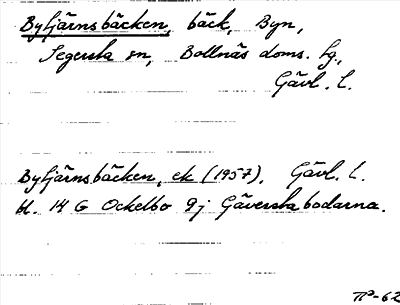 Bytjärnsbäcken, bäck, Byn,
Segersta sn, Bollnäs doms. hg.,
Gävl. l.
Bytjärnsbäcken, ek (1957), Gävl. l.
bl. 14 G Ockelbo 9j Gäverstabodarna.
-62